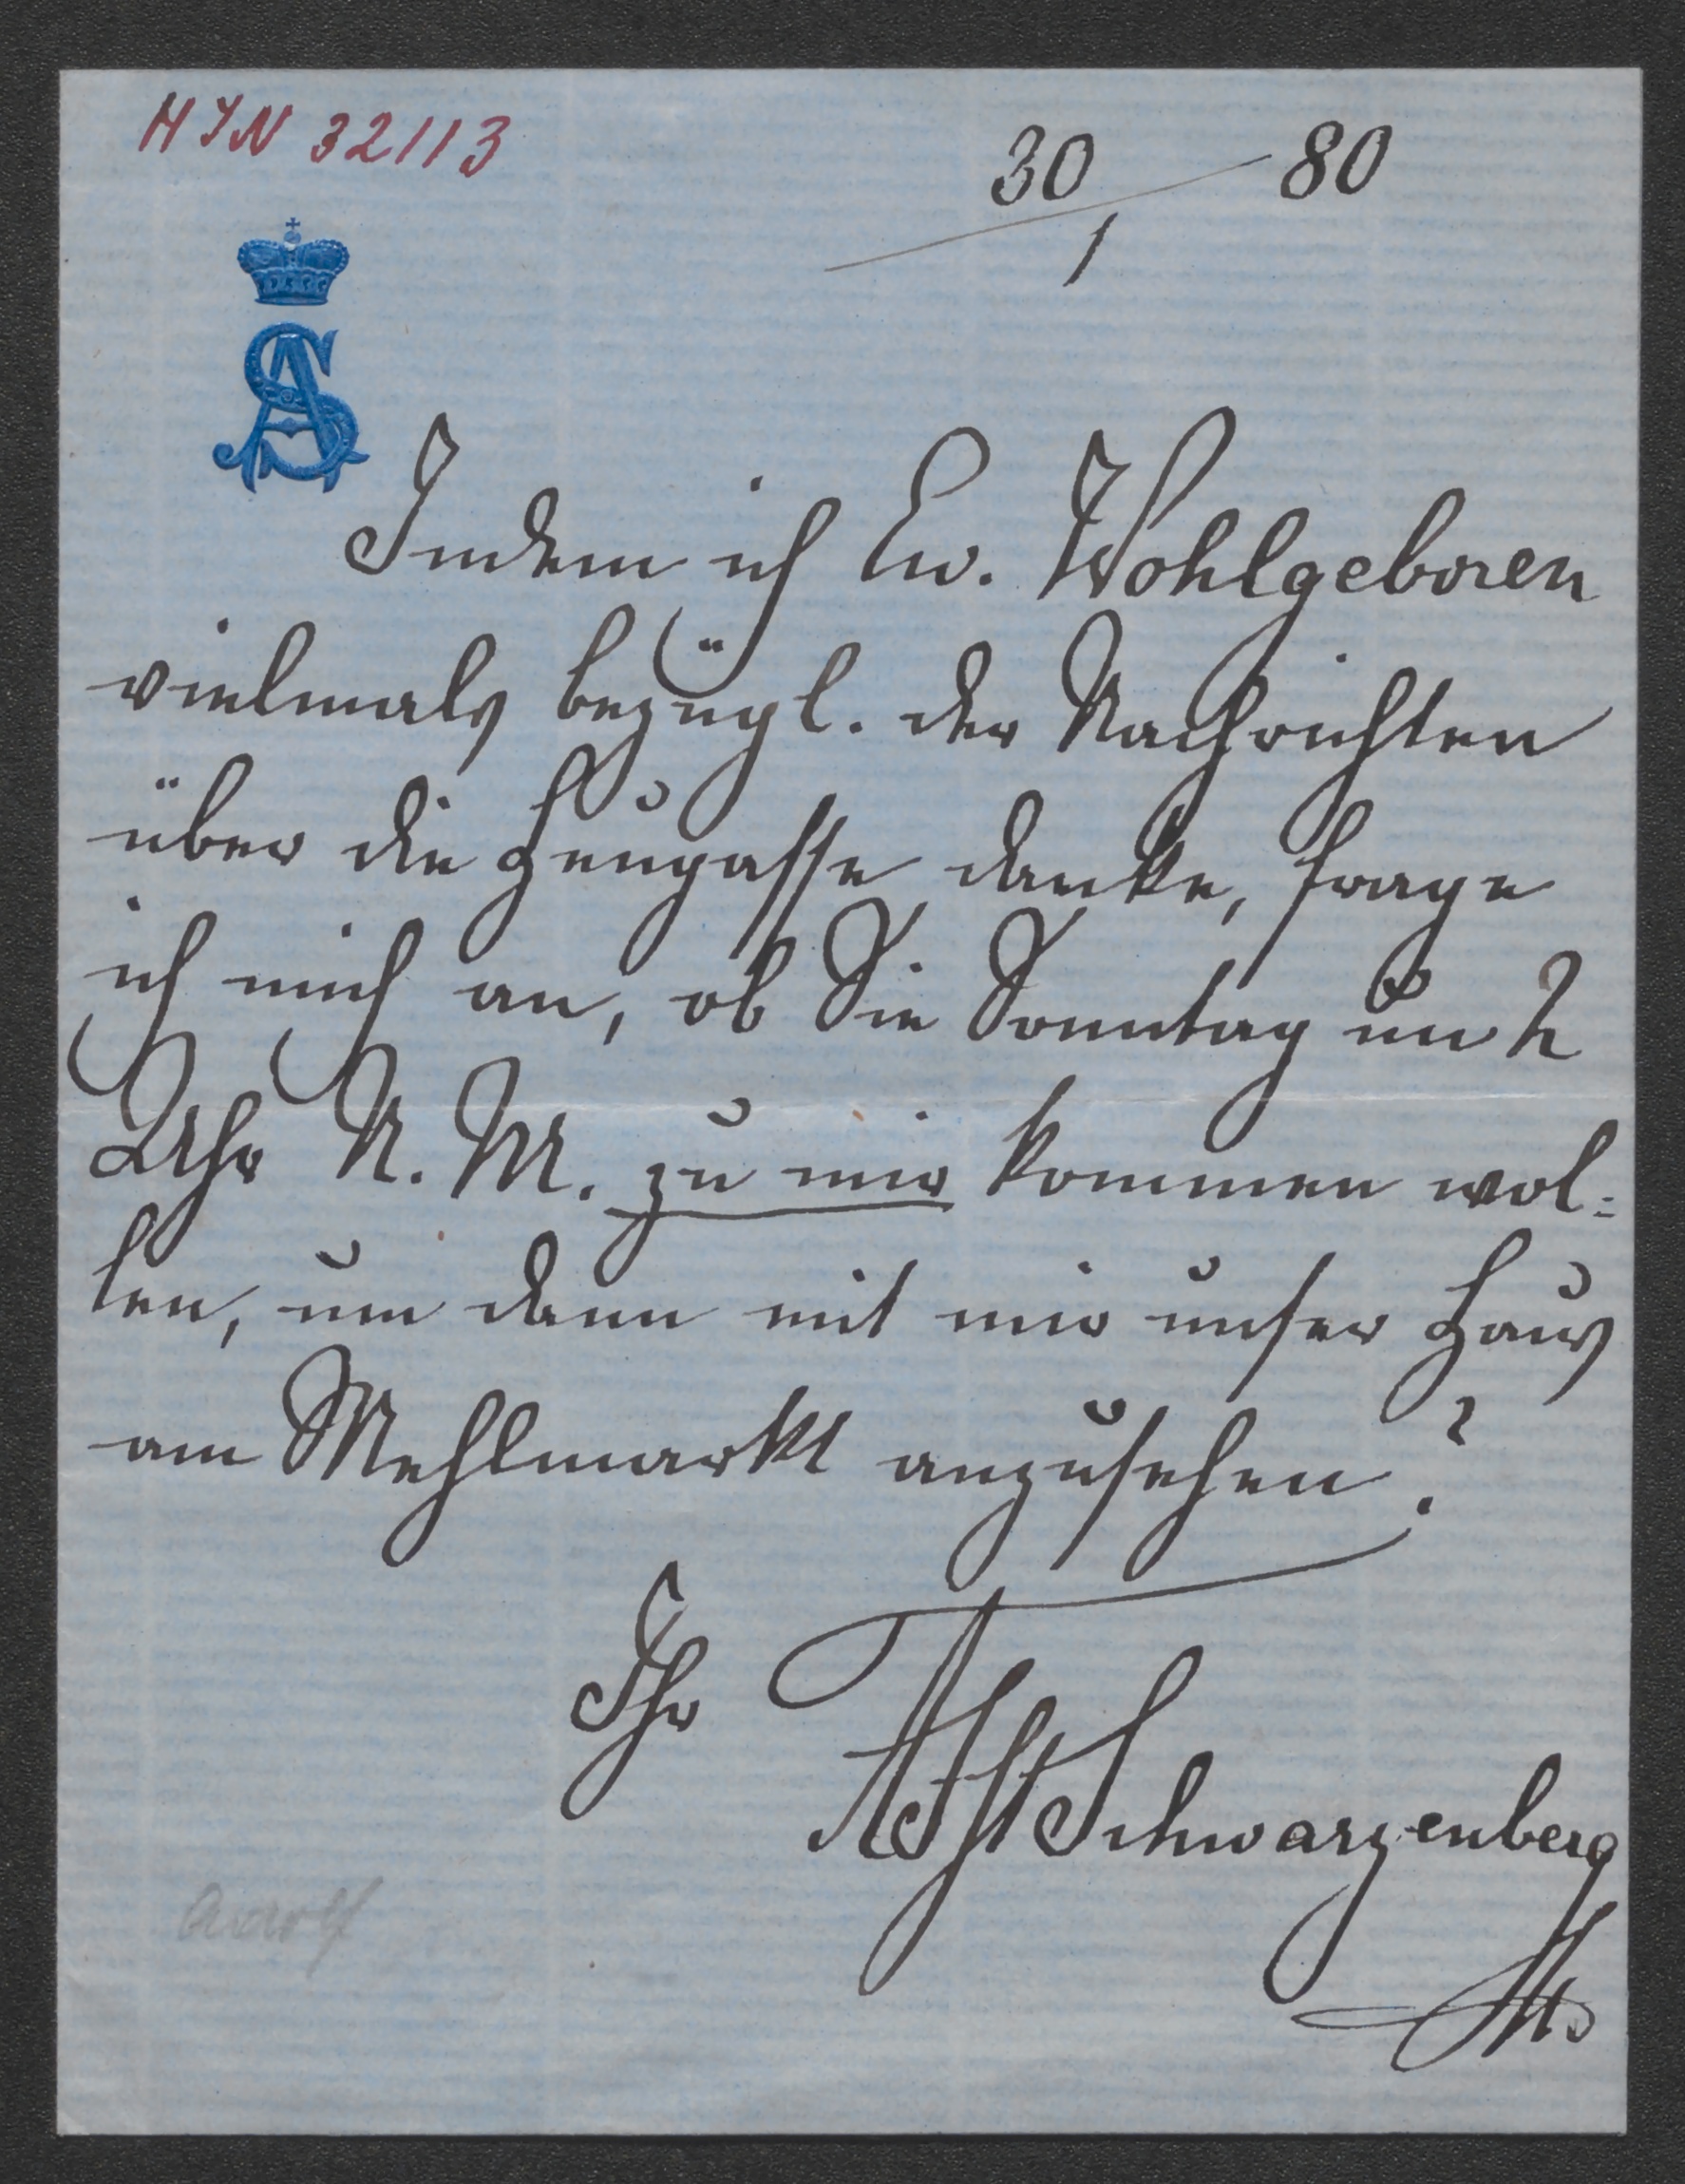 HIN 32113
30/1 80
AS
Indem ich Ew. Wohlgeboren
vielmals bezügl. der Nachrichten
über die Heugasse danke, frage
ich mich an, ob Sie Sonntag um 2
Uhr N. M. zu mir kommen wol=
len, um dann mit mir unser Haus
am Mehlmarkt anzusehen?
Ihr
Schwarzenberg
Adolf